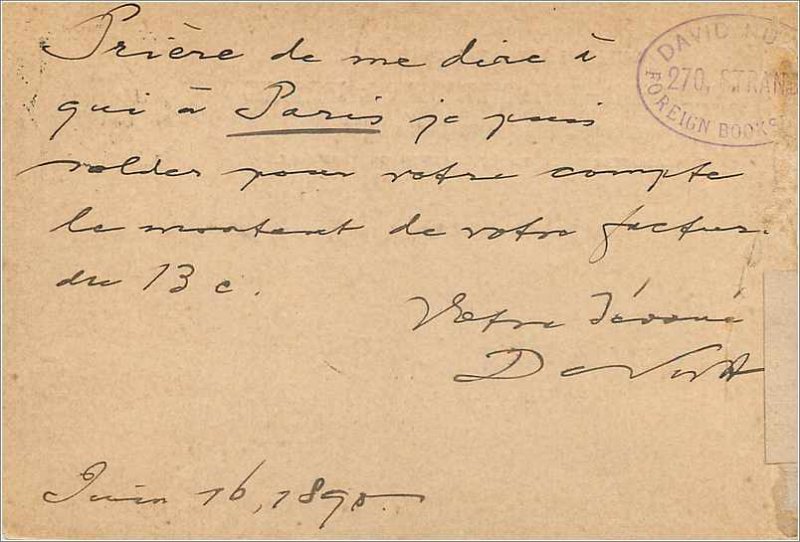 Prière de me dire à
DAVID NU
270, STRAND
FOREIGN BOOKS
qui à Paris je puis
solder pour votre compte
le montant de votre factur.
du 13 c.
Votre dévoué
D Nutt
Juin 16, 1890